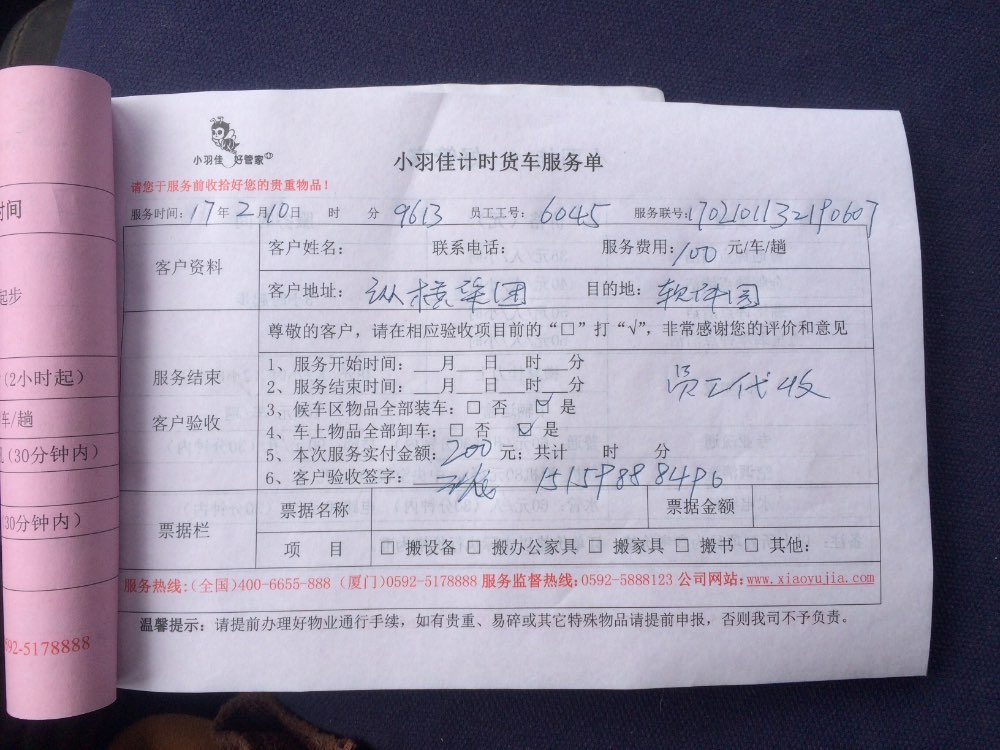 小羽佳 好管家
小羽佳计时货车服务单
请您于服务前收拾好您的贵重物品！
服务时间：17年2月10日 时 分 9613 员工工号：6045 服务联号：1702101132190607
客户资料
客户姓名： 联系电话： 服务费用：100 元/车/趟
客户地址：纵横集团 目的地：软件园
尊敬的客户，请在相应验收项目前的“□”打“√”，非常感谢您的评价和意见
服务结束
客户验收
1、服务开始时间：___月___日___时___分
2、服务结束时间：___月___日___时___分
3、候车区物品全部装车：□ 否 ☑ 是
4、车上物品全部卸车：□ 否 ☑ 是
5、本次服务实付金额：200 元；共计 时 分
6、客户验收签字： 15159888496
员工代收
票据栏
票据名称 票据金额
项 目 □ 搬设备 □ 搬办公家具 □ 搬家具 □ 搬书 □ 其他：
服务热线：(全国)400-6655-888 (厦门)0592-5178888 服务监督热线：0592-5888123 公司网站：www.xiaoyujia.com
温馨提示：请提前办理好物业通行手续，如有贵重、易碎或其它特殊物品请提前申报，否则我司不予负责。
时间
起步
(2小时起)
车/趟
(30分钟内)
30分钟内)
592-5178888